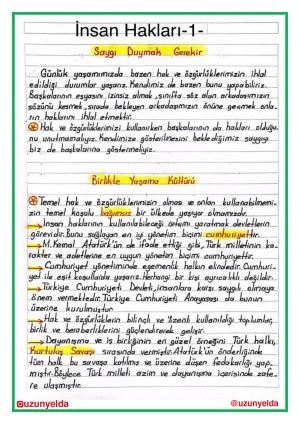 İnsan Hakları-1-
Saygı Duymak Gerekir
Günlük yaşamımızda bazen hak ve özgürlüklerimizin ihlal
edildiği durumlar yaşarız. Kendimiz de bazen bunu yapabiliriz.
Başkalarının eşyasını izinsiz almak, sınıfta söz alan arkadaşımızın
sözünü kesmek, sırada bekleyen arkadaşımızın önüne geçmek onla-
rın haklarını ihlal etmektir.
Hak ve özgürlüklerimizi kullanırken başkalarının da hakları olduğu-
nu unutmamalıyız. Kendimize gösterilmesini beklediğimiz saygıyı
biz de başkalarına göstermeliyiz.
Birlikte Yaşama Kültürü
Temel hak ve özgürlüklerimizin olması ve onları kullanabilmemi-
zin temel koşulu bağımsız bir ülkede yaşıyor olmamızdır.
İnsan haklarının kullanılabileceği ortamı yaratmak devletlerin
görevidir. Bunu sağlayan en iyi yönetim biçimi cumhuriyettir.
M. Kemal Atatürk'ün de ifade ettiği gibi, Türk milletinin ka-
rakter ve adetlerine en uygun yönetim biçimi cumhuriyettir.
Cumhuriyet yönetiminde egemenlik halkın elindedir. Cumhuri-
yet ile eşit koşullarda yaşarız. Herhangi bir kişi ayrıcalıklı değildir.
Türkiye Cumhuriyeti Devleti, insanlara karşı saygılı olmaya
önem vermektedir. Türkiye Cumhuriyeti Anayasası da bunun
üzerine kurulmuştur.
Hak ve özgürlüklerin bilinçli ve özenli kullanıldığı toplumlar,
birlik ve beraberliklerini güçlendirerek gelişir.
Dayanışma ve iş birliğinin en güzel örneğini Türk halkı,
Kurtuluş Savaşı sırasında vermiştir. Atatürk'ün önderliğinde
tüm halk bu savaşa katılmış ve üzerine düşen fedakarlığı yap-
mıştır. Böylece Türk milleti azim ve dayanışma içerisinde zafe-
re ulaşmıştır.
@uzunyelda
@uzunyelda